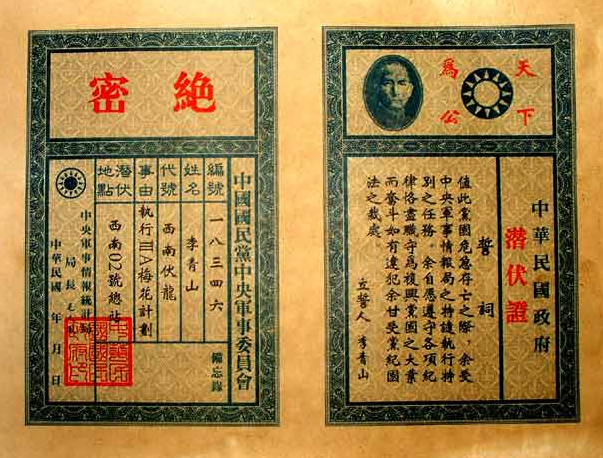 天下
爲公
中華民國政府
潛伏證
誓祠
值此黨國危急存亡之際，余受
中央軍事情報局之特諉執行特
別之任務。余自愿遵守各項紀
律恪盡職守爲復興黨國之大業
而奮斗如有違犯余甘受黨紀國
法之裁處
立誓人 李青山
絕密
中國國民黨中央軍事委員會
備忘錄
編號 一八三四六
姓名 李青山
代號 西南伏龍
事由 執行ⅢA梅花計劃
潛伏地點 西南02號總站
中央軍事情報統計局
局長
中華民國 年 月 日